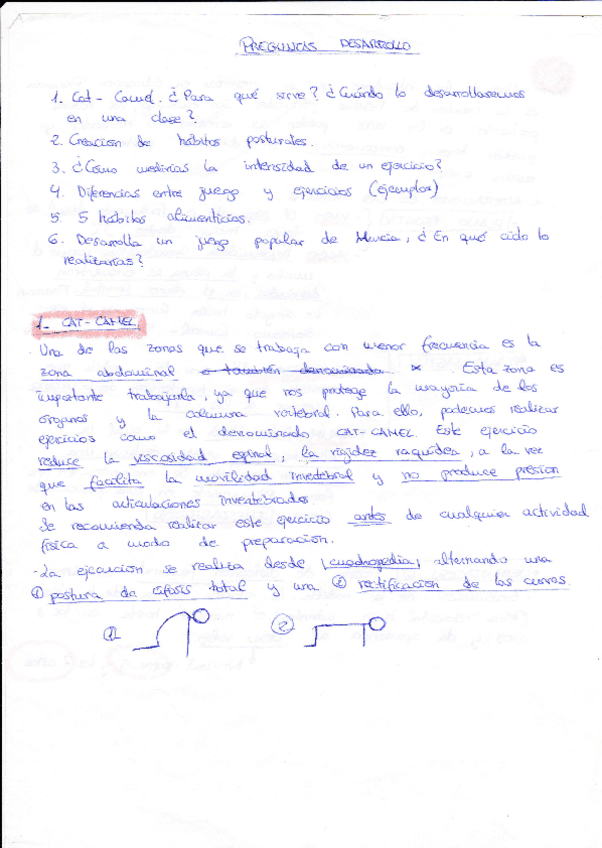 PREGUNTAS DESARROLLO
1. Cat - Camel. ¿Para qué sirve? ¿Cuándo lo desarrollaremos
en una clase?
2. Creación de hábitos posturales.
3. ¿Cómo medirías la intensidad de un ejercicio?
4. Diferencias entre juego y ejercicios (ejemplos)
5. 5 hábitos alimenticios.
6. Desarrolla un juego popular de Murcia, ¿En qué ciclo lo
realizarías?
1- CAT-CAMEL.
Una de las zonas que se trabaja con menor frecuencia es la
zona abdominal o también denominada * . Esta zona es
importante trabajarla, ya que nos protege la mayoría de los
órganos y la columna vertebral. Para ello, podemos realizar
ejercicios como el denominado CAT-CAMEL. Este ejercicio
reduce la viscosidad espinal, la rigidez raquídea, a la vez
que facilita la movilidad invedebral y no produce presion
en las articulaciones invertebrados
Se recomienda realizar este ejercicio antes de cualquier actividad
física a modo de preparación.
-La ejecución se realiza desde cuadrupedia, alternando una
① postura de cifosis total y una ② rectificación de las curvas.
① ②